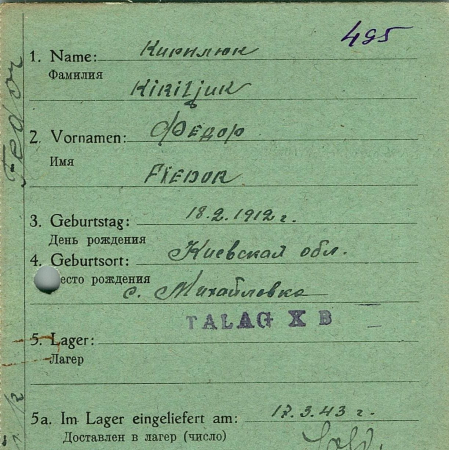 495
1. Name: Кирилюк
Фамилия
Kiriljuk
2. Vornamen: Федор
Имя
Fiedor
3. Geburtstag: 18.2.1912 г.
День рождения
4. Geburtsort: Киевская обл.
есто рождения с. Михайловка
TALAG X B
5. Lager:
Лагер
5a. Im Lager eingeliefert am: 17.3.43 г.
Доставлен в лагер (число)
Fedor